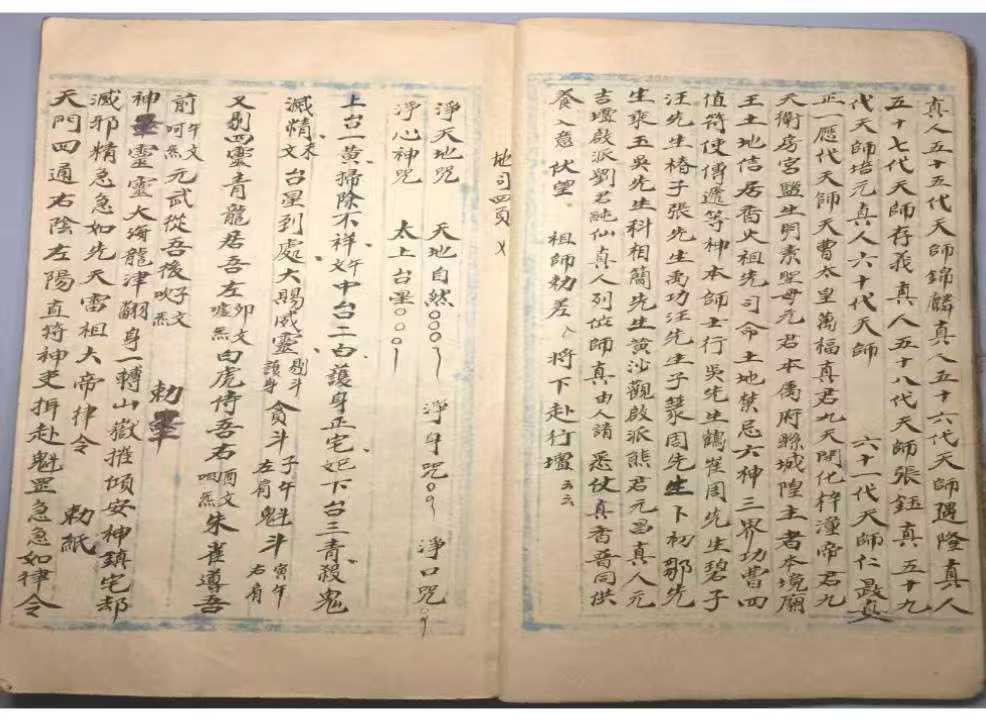 真人五十五代天師錦麟真人五十六代天師遇隆真人
五十七代天師存義真人五十八代天師張鈺真人五十九
代天師培元真人六十代天師 六十一代天師仁晸真人
正一應代天師天曹太皇萬福真君九天開化梓潼帝君九
天衛房宮監生明素聖母元君本禹府縣城隍主者本境廟
王土地信居香火祖先司命土地禁忌六神三界功曹四
值符使傳遞等神本師士行吳先生鶴崔周先生碧子
汪先生椿子張先生禹功汪先生子蓑周先生下初鄒先
生乘五吳先生科相簡先生黃沙觀啟派熊君元昌真人元
吉壇啟派劉君純仙真人列位師真由人請悉仗真香普同供
養入意伏望 祖師勅差 將下赴行壇
地司四頁
淨天地咒 天地自然 淨身咒 淨口咒
淨心神咒 太上台星
上台一黃掃除不祥午文中台二白護身正宅下台三青殺鬼
滅精未文台星到處大賜威靈剔斗護身貪斗子午左肩魁斗寅午右肩
又剔四靈青龍居吾左卯文噓炁白虎侍吾右酉文呬炁朱雀導吾
前午文呵炁元武從吾後子文吹炁 勅筆
神墨靈靈大海龍津翻身一轉山嶽摧傾安神鎮宅却
滅邪精急急如先天雷祖大帝律令 勅紙
天門四通右陰左陽直符神吏揖赴魁罡急急如律令